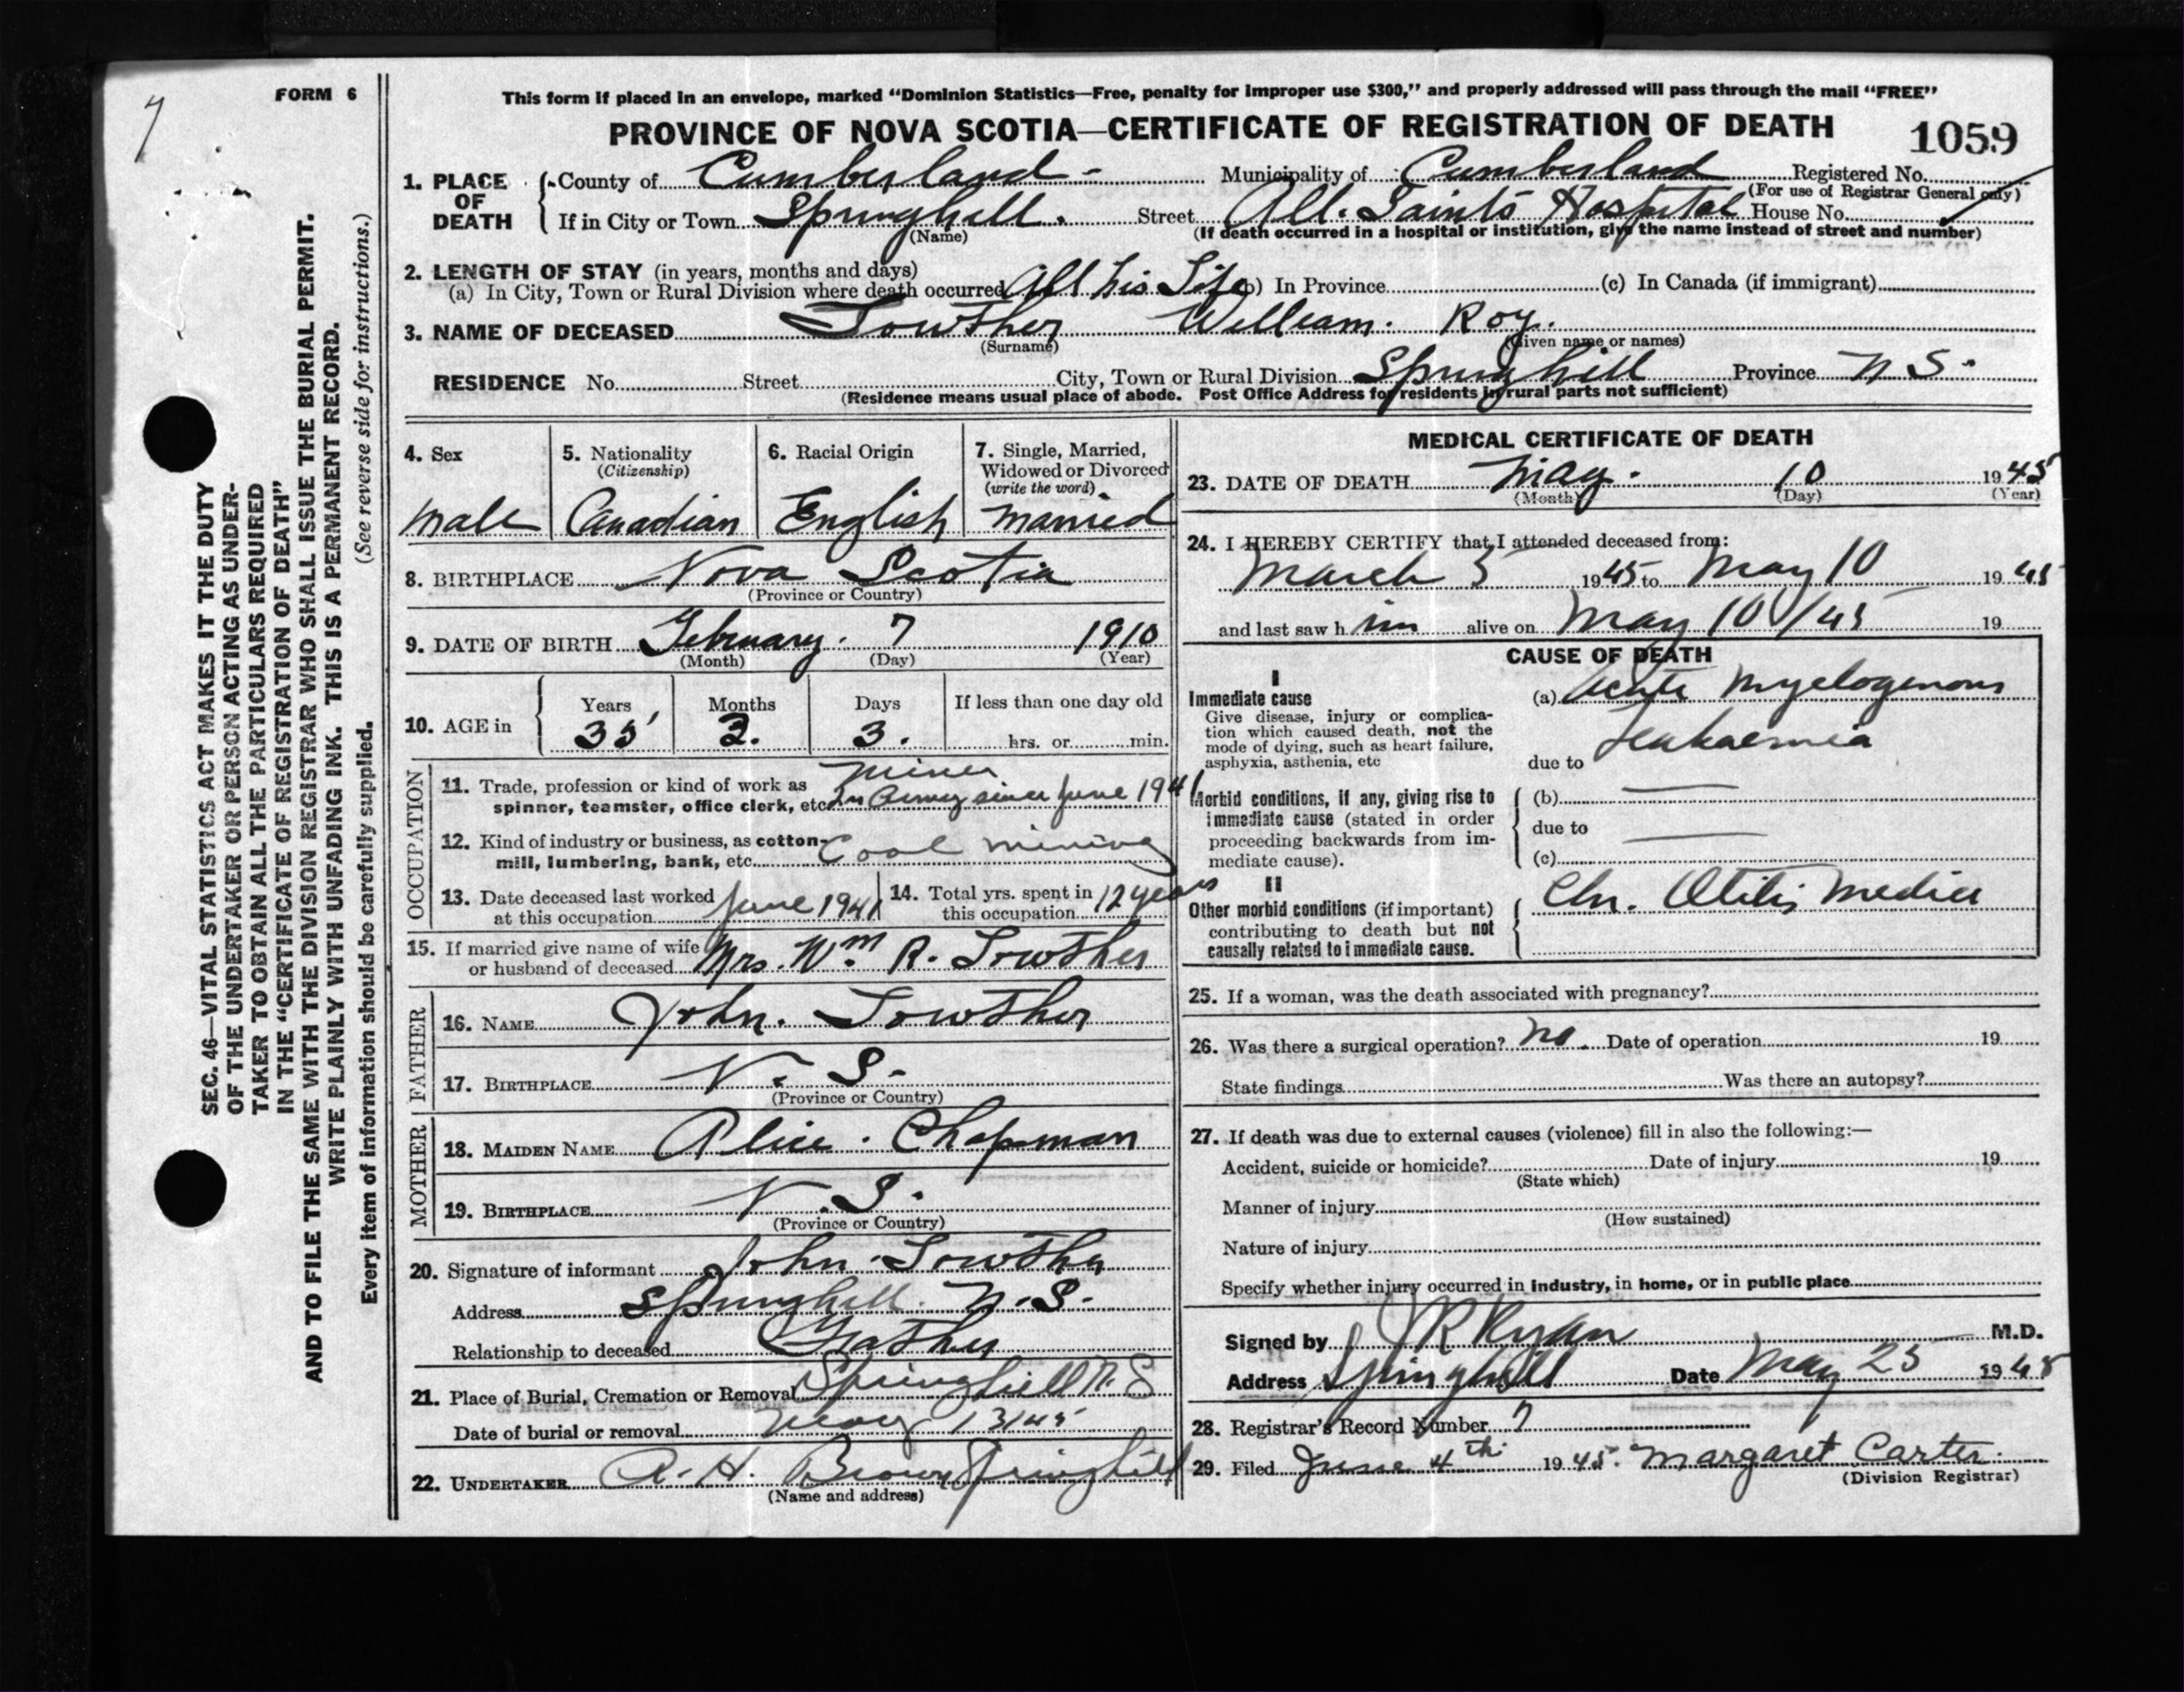 7
FORM 6
SEC. 46—VITAL STATISTICS ACT MAKES IT THE DUTY
OF THE UNDERTAKER OR PERSON ACTING AS UNDER-
TAKER TO OBTAIN ALL THE PARTICULARS REQUIRED
IN THE "CERTIFICATE OF REGISTRATION OF DEATH"
AND TO FILE THE SAME WITH THE DIVISION REGISTRAR WHO SHALL ISSUE THE BURIAL PERMIT.
WRITE PLAINLY WITH UNFADING INK. THIS IS A PERMANENT RECORD.
Every item of information should be carefully supplied. (See reverse side for instructions.)
This form if placed in an envelope, marked "Dominion Statistics—Free, penalty for improper use $300," and properly addressed will pass through the mail "FREE"
PROVINCE OF NOVA SCOTIA—CERTIFICATE OF REGISTRATION OF DEATH 1059
1. PLACE OF DEATH County of Cumberland - Municipality of Cumberland Registered No.
(For use of Registrar General only)
If in City or Town Springhill. Street All. Saints Hospital House No.
(Name) (If death occurred in a hospital or institution, give the name instead of street and number)
2. LENGTH OF STAY (in years, months and days)
(a) In City, Town or Rural Division where death occurred All his Life (b) In Province (c) In Canada (if immigrant)
3. NAME OF DECEASED Lowther William. Roy.
(Surname) (Given name or names)
RESIDENCE No. Street City, Town or Rural Division Springhill Province N S.
(Residence means usual place of abode. Post Office Address for residents in rural parts not sufficient)
4. Sex
male
5. Nationality
(Citizenship)
Canadian
6. Racial Origin
English
7. Single, Married,
Widowed or Divorced
(write the word)
married
8. BIRTHPLACE Nova Scotia
(Province or Country)
9. DATE OF BIRTH February. 7 1910
(Month) (Day) (Year)
10. AGE in Years Months Days If less than one day old
35 3. 3. hrs. or min.
OCCUPATION
11. Trade, profession or kind of work as Miner
spinner, teamster, office clerk, etc. In Army since June 1941
12. Kind of industry or business, as cotton-
mill, lumbering, bank, etc. Coal mining
13. Date deceased last worked
at this occupation June 1941
14. Total yrs. spent in
this occupation 12 years
15. If married give name of wife
or husband of deceased Mrs. Wm R. Lowther
FATHER
16. NAME John. Lowther
17. BIRTHPLACE N. S.
(Province or Country)
MOTHER
18. MAIDEN NAME Alice. Chapman
19. BIRTHPLACE N. S.
(Province or Country)
20. Signature of informant John Lowther
Address Springhill. N. S.
Relationship to deceased Father
21. Place of Burial, Cremation or Removal Springhill N. S
Date of burial or removal May 13/45
22. UNDERTAKER A. H. Brown Springhill
(Name and address)
MEDICAL CERTIFICATE OF DEATH
23. DATE OF DEATH May. 10 1945
(Month) (Day) (Year)
24. I HEREBY CERTIFY that I attended deceased from:
March 5 1945 to May 10 1945
and last saw him alive on May 10/45 19
CAUSE OF DEATH
I
Immediate cause
Give disease, injury or complica-
tion which caused death, not the
mode of dying, such as heart failure,
asphyxia, asthenia, etc
(a) Acute Myelogenous
Leukaemia
due to
Morbid conditions, if any, giving rise to
immediate cause (stated in order
proceeding backwards from im-
mediate cause).
(b) —
due to —
(c)
II
Other morbid conditions (if important)
contributing to death but not
causally related to immediate cause.
Chr. Otitis Media
25. If a woman, was the death associated with pregnancy?
26. Was there a surgical operation? No. Date of operation 19
State findings Was there an autopsy?
27. If death was due to external causes (violence) fill in also the following:—
Accident, suicide or homicide? Date of injury 19
(State which)
Manner of injury
(How sustained)
Nature of injury
Specify whether injury occurred in industry, in home, or in public place
Signed by J R Ryan M.D.
Address Springhill Date May 25 1945
28. Registrar's Record Number 7
29. Filed June 4th 1945. Margaret Carter.
(Division Registrar)